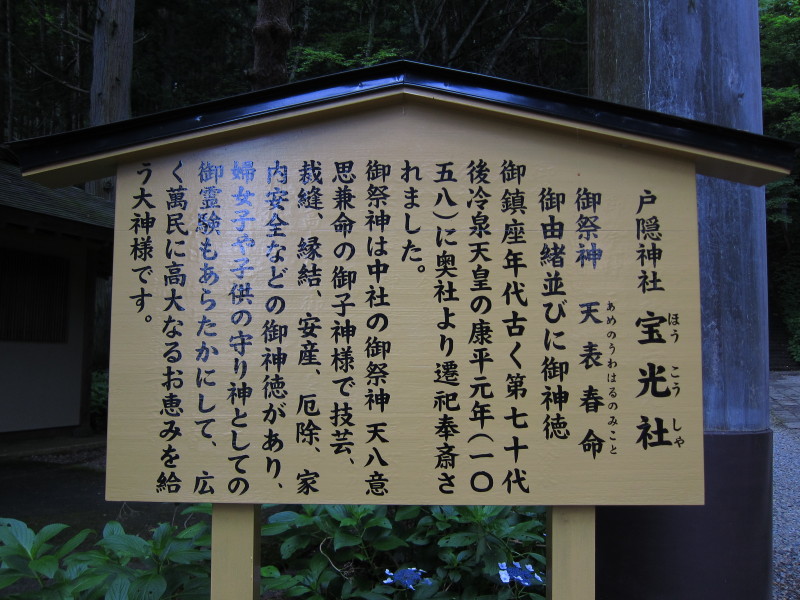 戸隠神社 宝光社
ほう こう しゃ
御祭神 天表春命
あめのうわはるのみこと
御由緒並びに御神徳
御鎮座年代古く第七十代
後冷泉天皇の康平元年(一〇
五八)に奥社より遷祀奉斎さ
れました。
御祭神は中社の御祭神 天八意
思兼命の御子神様で技芸、
裁縫、縁結、安産、厄除、家
内安全などの御神徳があり、
婦女子や子供の守り神としての
御霊験もあらたかにして、広
く萬民に高大なるお恵みを給
う大神様です。